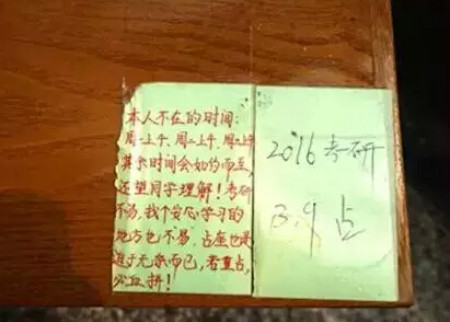 本人不在的时间:
周一上午、周二上午、周三上午
其余时间会如约而至,
还望同学理解!考研
不易,找个安心学习的
地方也不易,占座也是
迫于无奈而已,若重占,
必血拼!
2016考研
3.9占